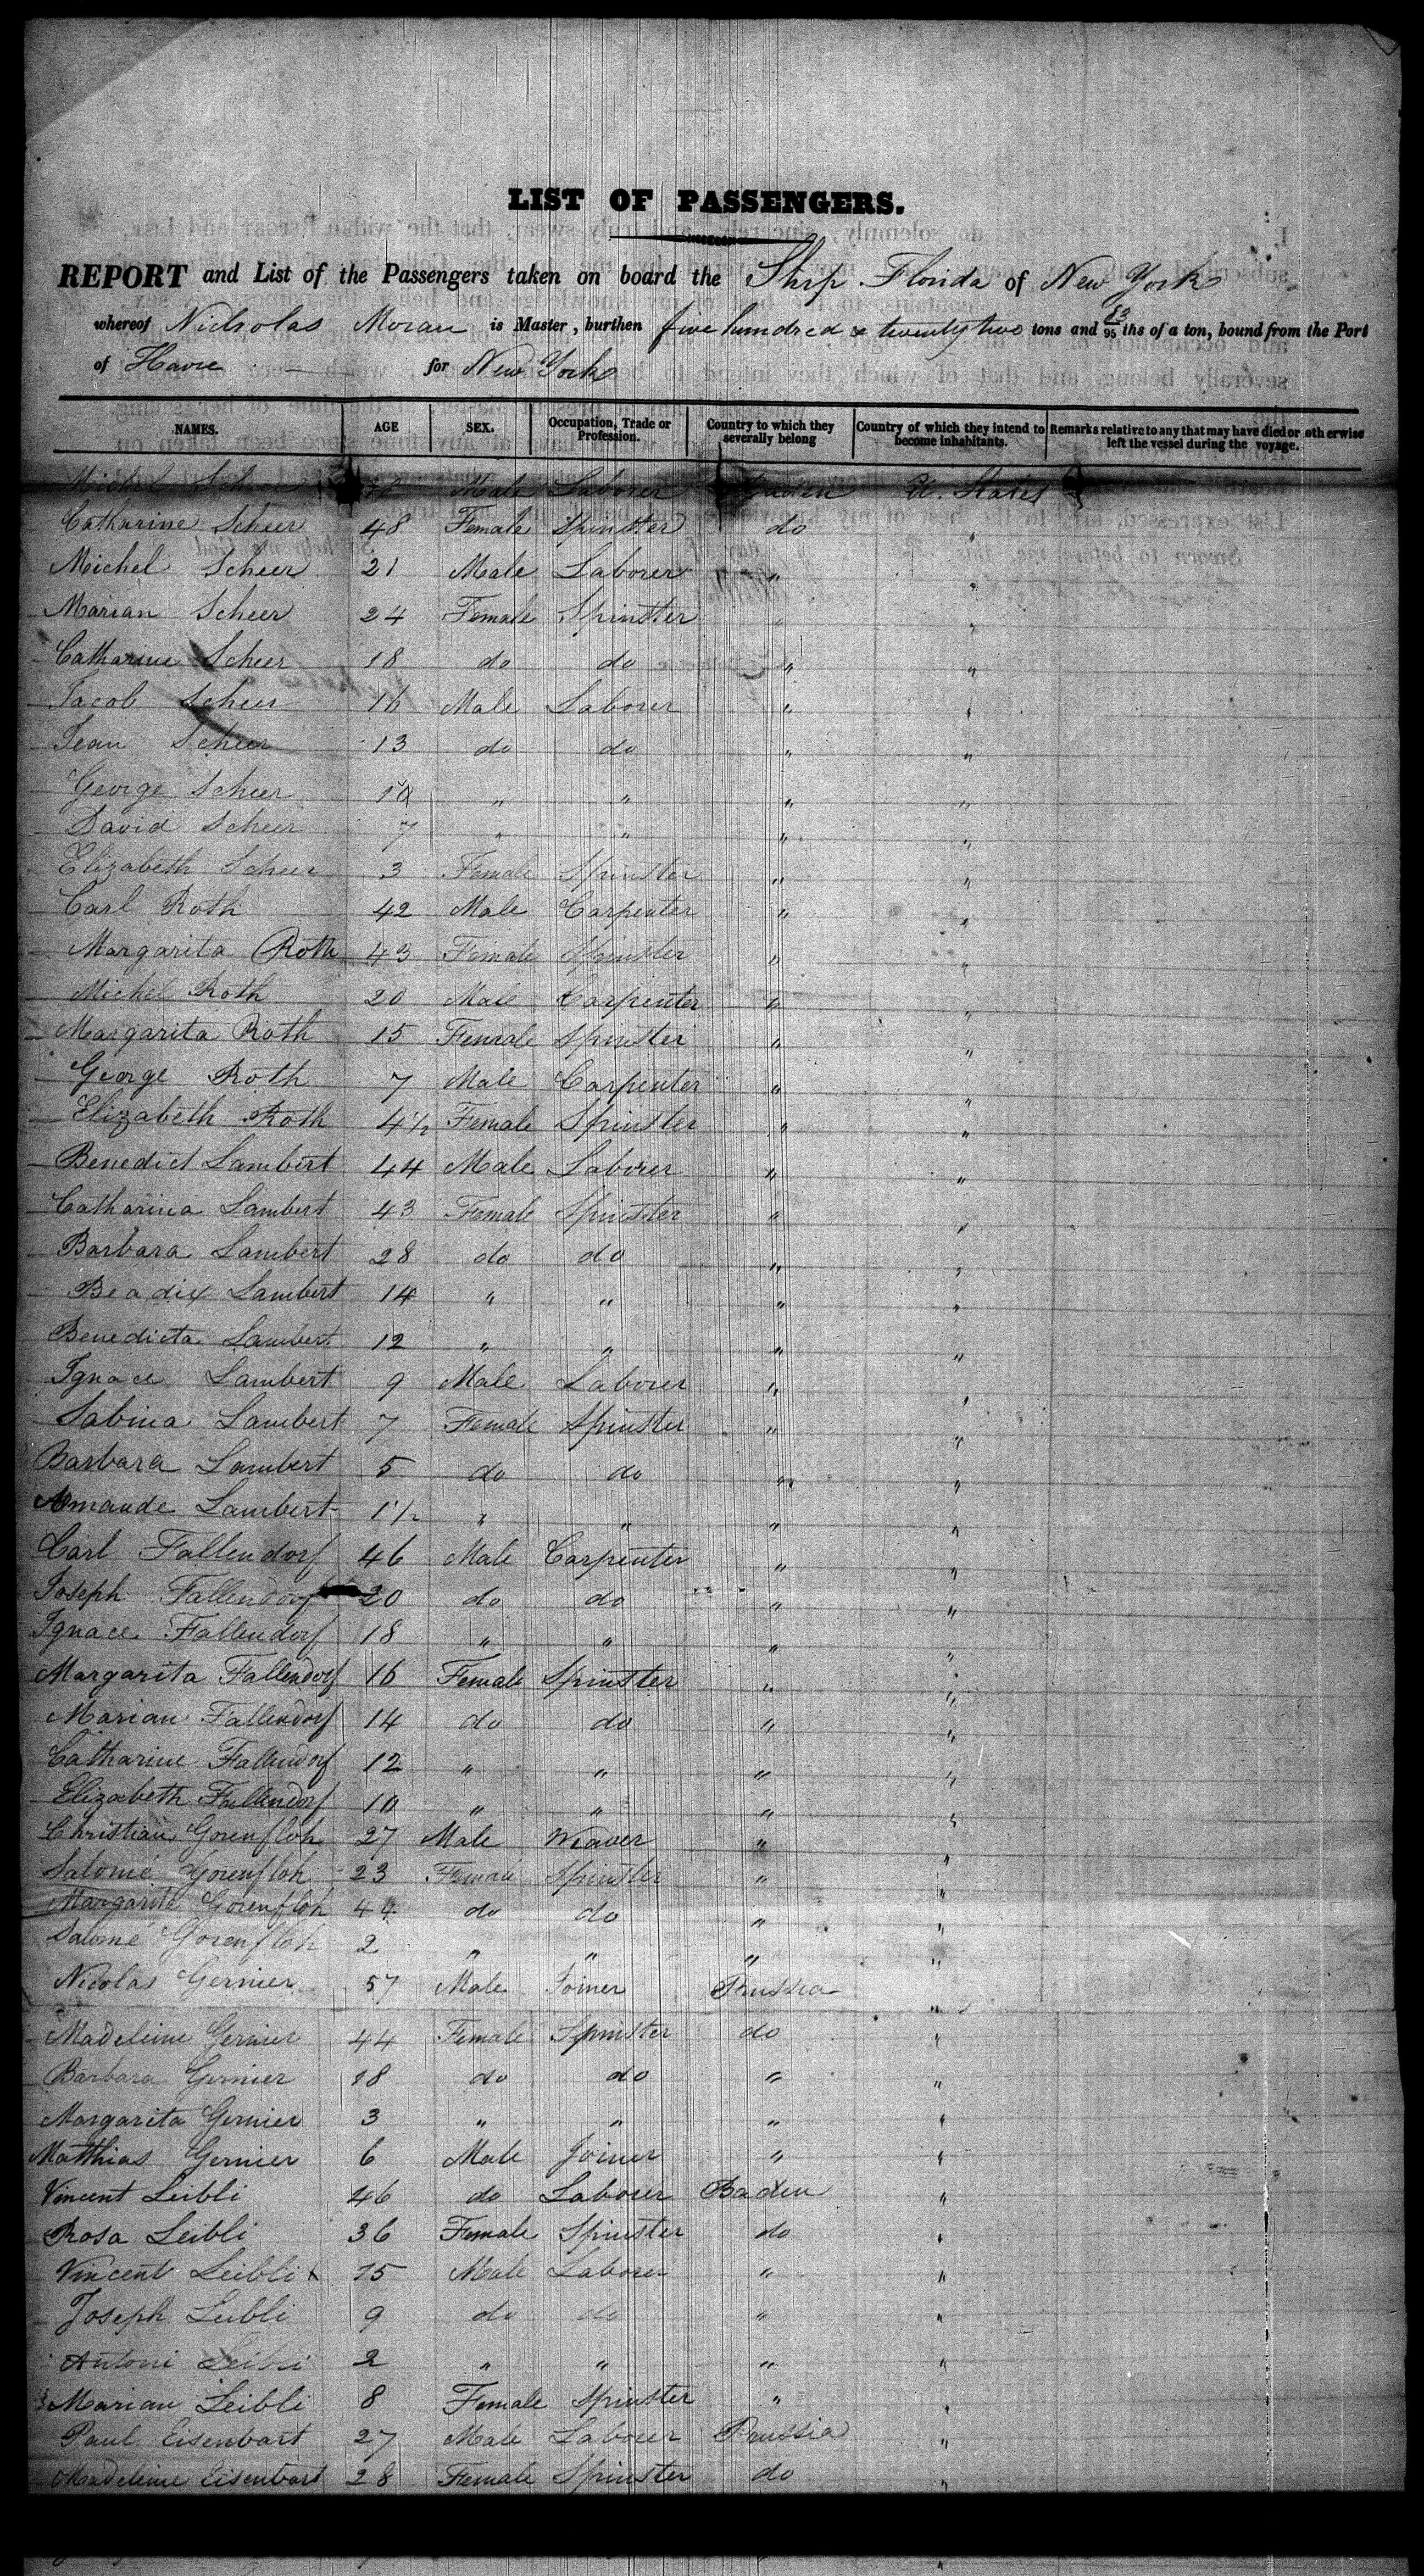 LIST OF PASSENGERS.
REPORT and List of the Passengers taken on board the Ship Florida of New York
whereof Nicholas Moran is Master, burthen five hundred & twenty two tons and 83/95 ths of a ton, bound from the Port
of Havre for New York
NAMES. AGE SEX. Occupation, Trade or Profession. Country to which they severally belong Country of which they intend to become inhabitants. Remarks relative to any that may have died or otherwise left the vessel during the voyage.
Michel Scheer Male Laborer Baden U. States
Catharine Scheer 48 Female Spinster do "
Michel Scheer 21 Male Laborer " "
Marian Scheer 24 Female Spinster " "
Catharine Scheer 18 do do " "
Jacob Scheer 16 Male Laborer " "
Jean Scheer 13 do do " "
George Scheer 10 " " " "
David Scheer 7 " " " "
Elizabeth Scheer 3 Female Spinster " "
Carl Roth 42 Male Carpenter " "
Margarita Roth 43 Female Spinster " "
Michel Roth 20 Male Carpenter " "
Margarita Roth 15 Female Spinster " "
George Roth 7 Male Carpenter " "
Elizabeth Roth 4 1/2 Female Spinster " "
Benedict Lambert 44 Male Laborer " "
Catharina Lambert 43 Female Spinster " "
Barbara Lambert 28 do do " "
Beadix Lambert 14 " " " "
Benedicta Lambert 12 " " " "
Ignace Lambert 9 Male Laborer " "
Sabina Lambert 7 Female Spinster " "
Barbara Lambert 5 do do " "
Amande Lambert 1 1/2 " " " "
Carl Fallendorf 46 Male Carpenter " "
Joseph Fallendorf 20 do do " "
Ignace Fallendorf 18 " " " "
Margarita Fallendorf 16 Female Spinster " "
Marian Fallendorf 14 do do " "
Catharine Fallendorf 12 " " " "
Elizabeth Fallendorf 10 " " " "
Christian Gorenfloh 27 Male Weaver " "
Salomé Gorenfloh 23 Female Spinster " "
Margarite Gorenfloh 44 do do " "
Salomé Gorenfloh 2 " " " "
Nicolas Gernier 57 Male Joiner Prussia "
Madeleine Gernier 44 Female Spinster do "
Barbara Gernier 18 do do " "
Margarita Gernier 3 " " " "
Matthias Gernier 6 Male Joiner " "
Vincent Leibli 46 do Laborer Baden "
Rosa Leibli 36 Female Spinster do "
Vincent Leibli x 15 Male Laborer " "
Joseph Leibli 9 do do " "
Antoni Leibli 2 " " " "
Marian Leibli 8 Female Spinster " "
Paul Eisenbart 27 Male Laborer Prussia "
Madeleine Eisenbart 28 Female Spinster do "